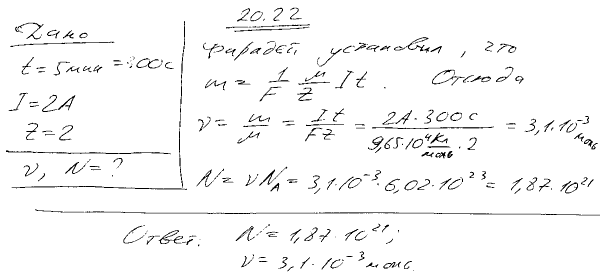 20.22
Дано
t = 5 мин = 300 с
I = 2A
Z = 2
ν, N = ?
Фарадей установил, что
m = 1/F μ/Z It. Отсюда
ν = m/μ = It/FZ = 2A·300с/9,65·10⁴ Кл/моль·2 = 3,1·10⁻³ моль
N = νN_A = 3,1·10⁻³·6,02·10²³ = 1,87·10²¹
Ответ: N = 1,87·10²¹;
ν = 3,1·10⁻³ моль.